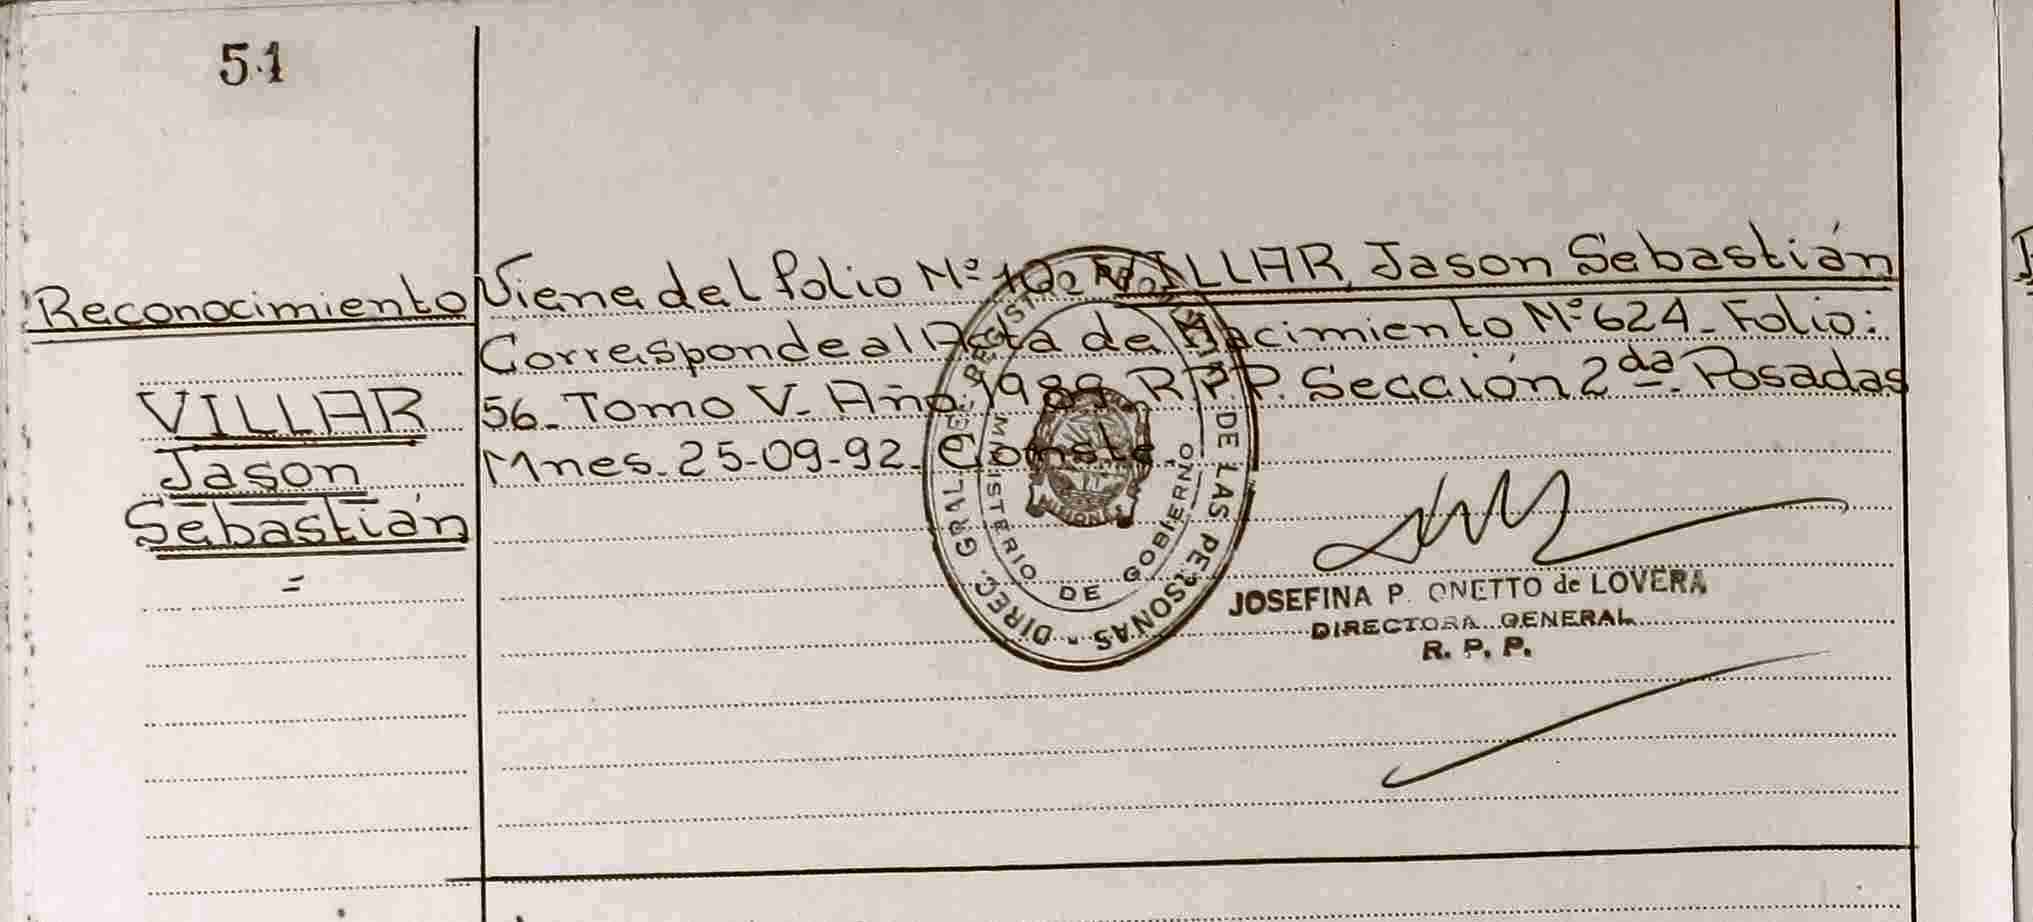 51
Reconocimiento
VILLAR
Jason
Sebastián
=
Viene del folio Nº VILLAR, Jason Sebastián
Corresponde al Acta de Nacimiento Nº 624_ Folio:
56_ Tomo V_ Año: 1989_ R.P.P. Sección 2da_ Posadas
Mnes_ 25-09-92_ Conste.
DIREC. GRAL. DE REGIST DE LAS PERSONAS -
MINISTERIO DE GOBIERNO
JOSEFINA P. ONETTO de LOVERA
DIRECTORA GENERAL
R. P. P.